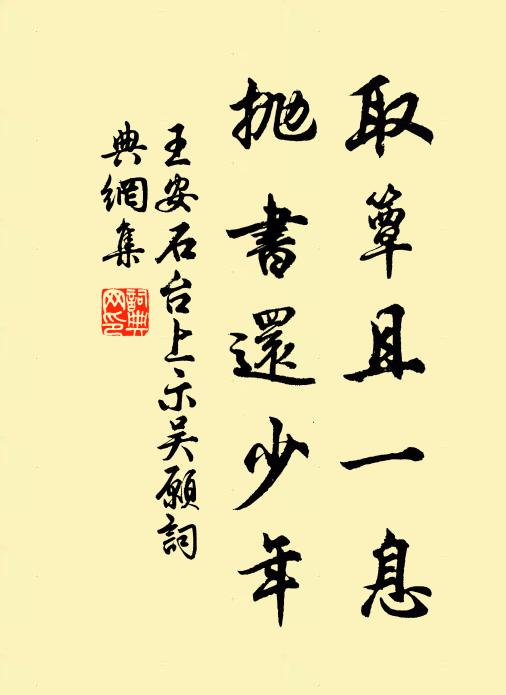 取簟且一息
抛書還少年
王安石台上示吴願詞
典網集
詞典網印